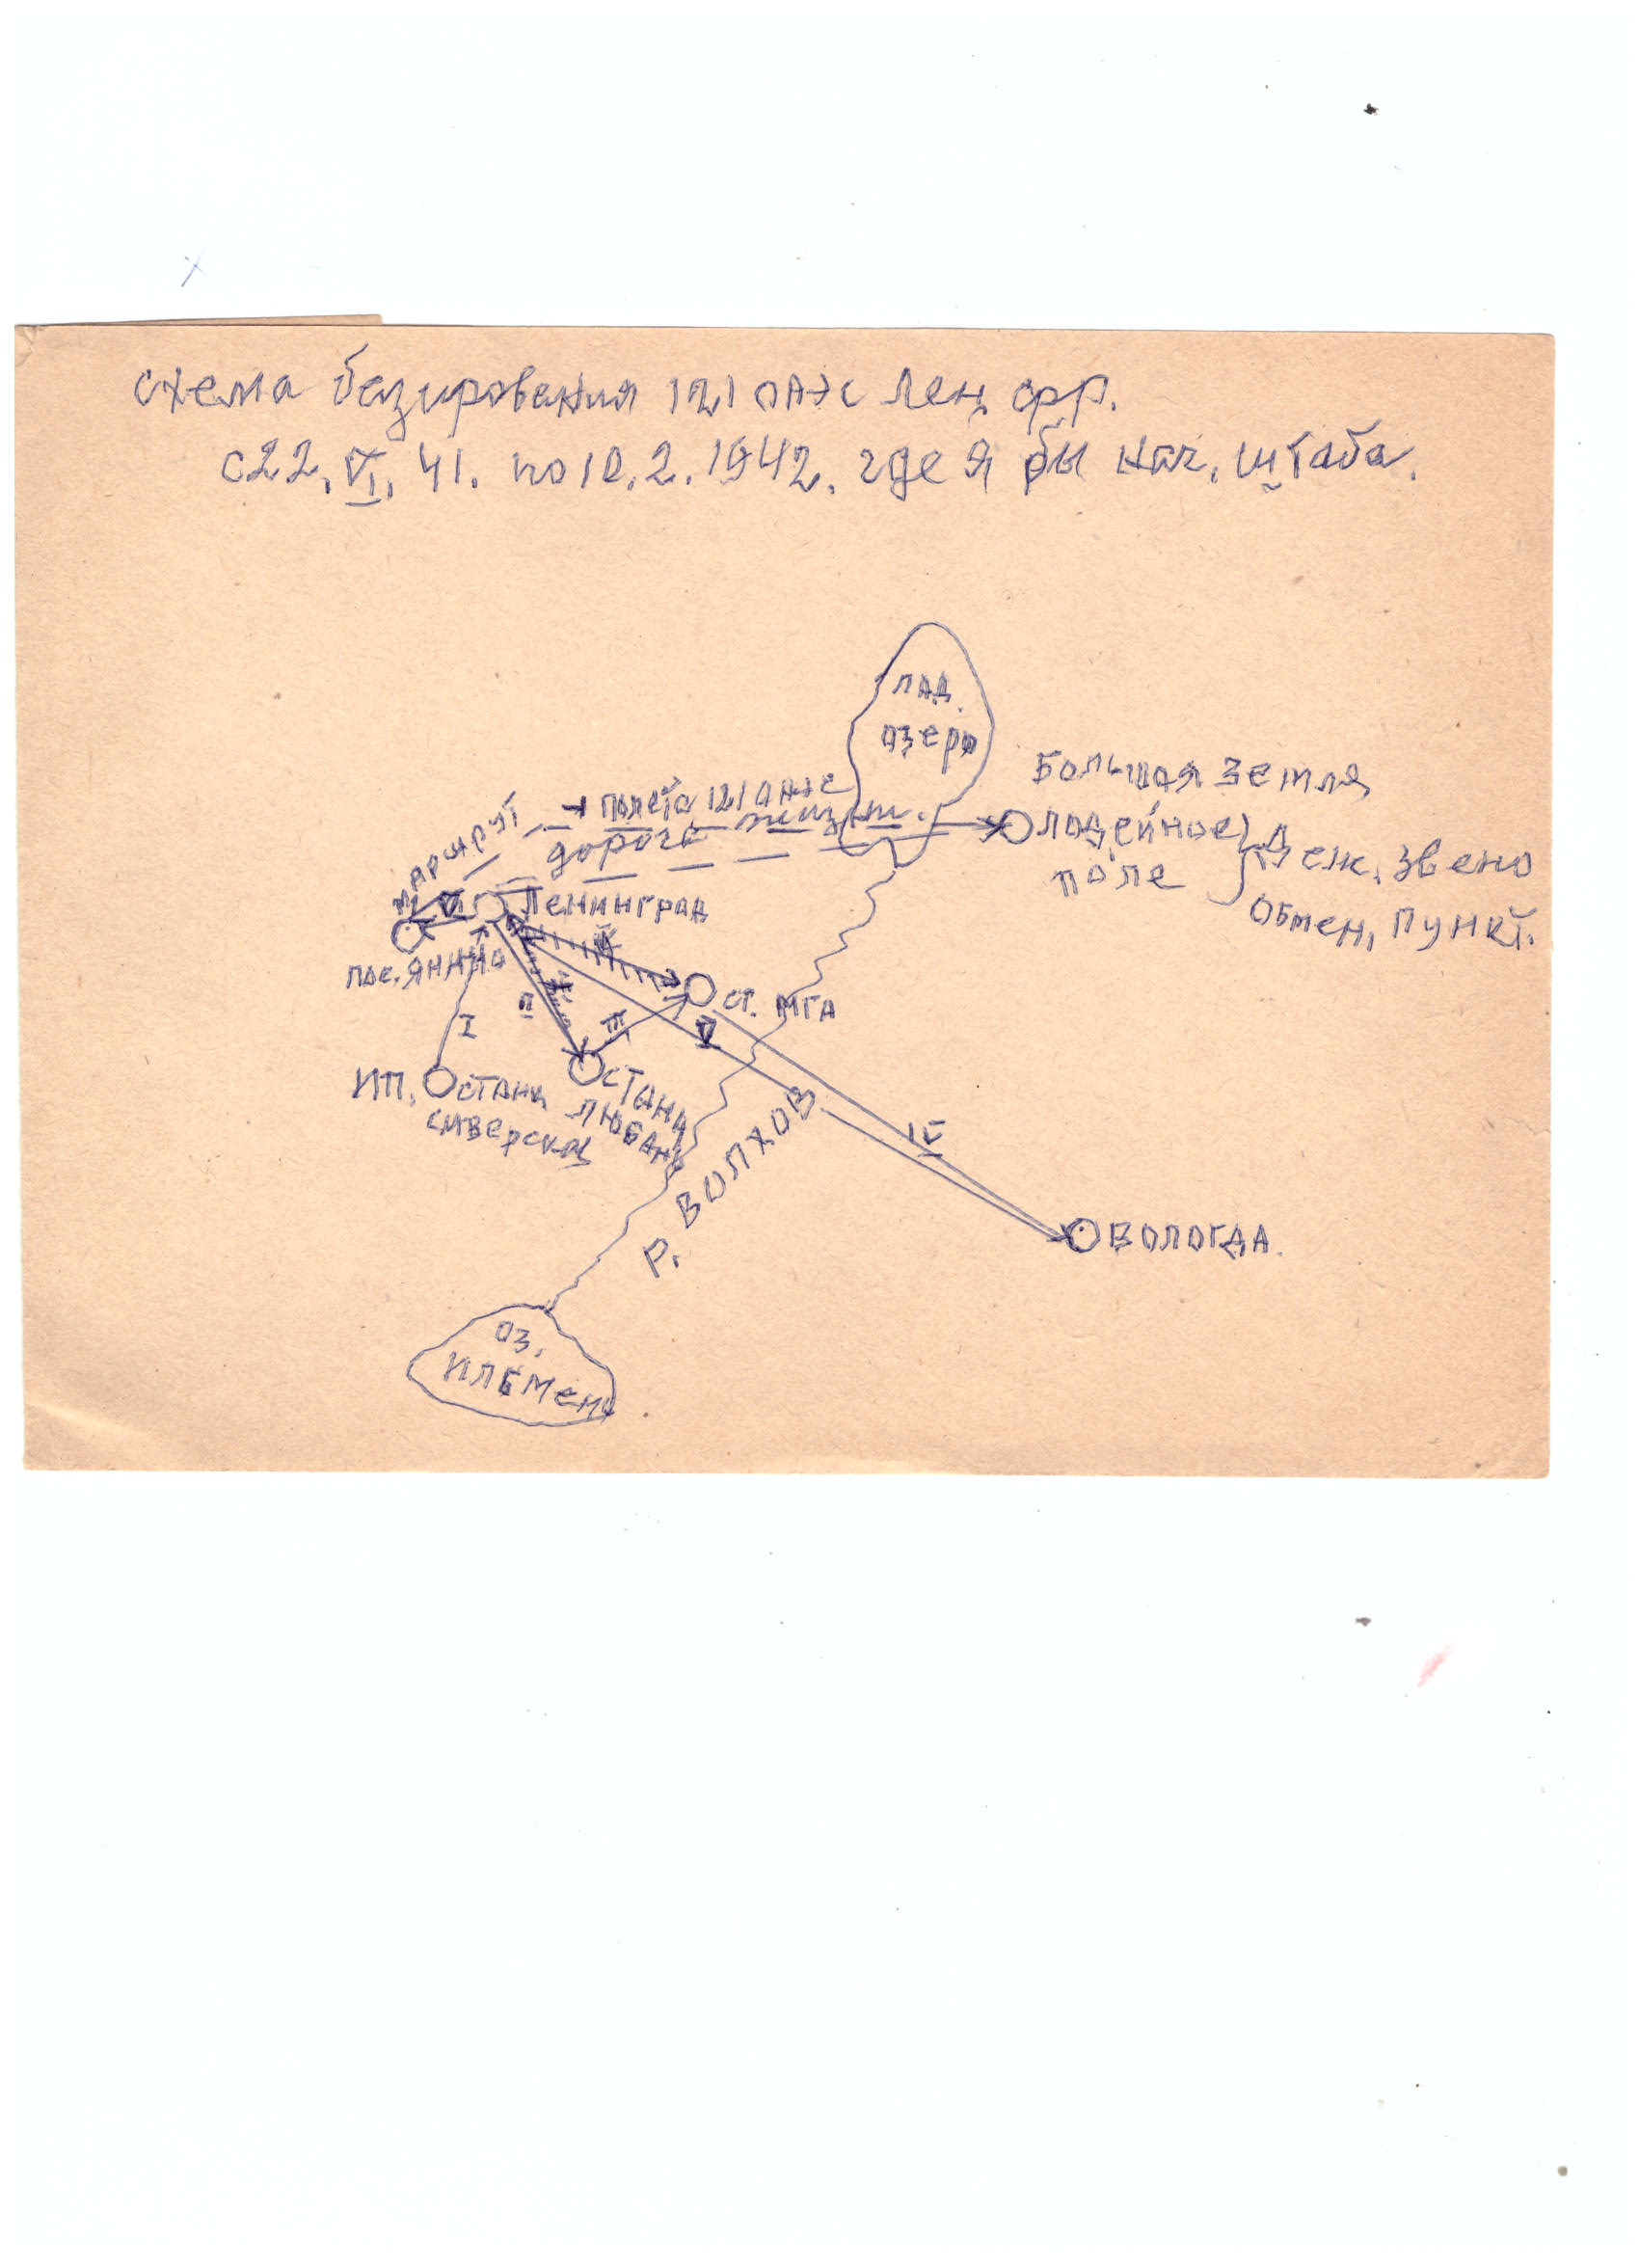 схема базирования 121 оаэс Лен. фр.
с 22. VI. 41. по 10. 2. 1942. где я бы нач. штаба.
лад.
озеро
Большая земля
Маршрут полета 121 оаэс
дорога жизни.
Лодейное
поле
Деж. звено
Обмен. пункт.
VI
Ленинград
пос. Янино
ст. МГА
I
II
III
V
ИП. стани
сиверская
стани
Любань
IV
р. Волхов
Вологда.
оз.
Ильмень